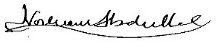 Norman Abdullah